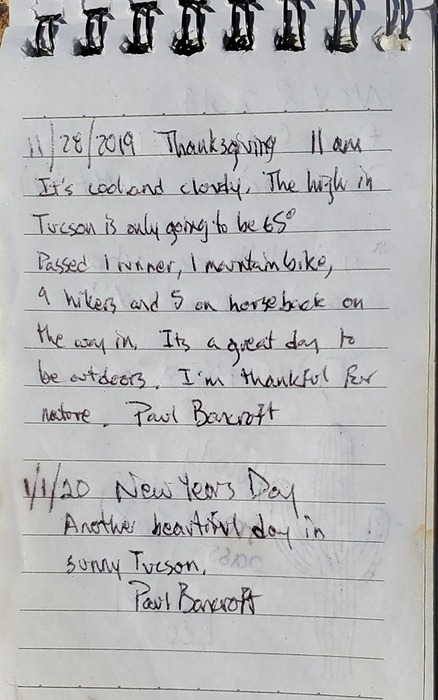 11/28/2019 Thanksgiving 11 am
It's cool and cloudy. The high in
Tucson is only going to be 65°
Passed 1 runner, 1 mountain bike,
9 hikers and 5 on horseback on
the way in. Its a great day to
be outdoors. I'm thankful for
nature. Paul Bancroft
1/1/20 New Years Day
Another beautiful day in
sunny Tucson.
Paul Bancroft